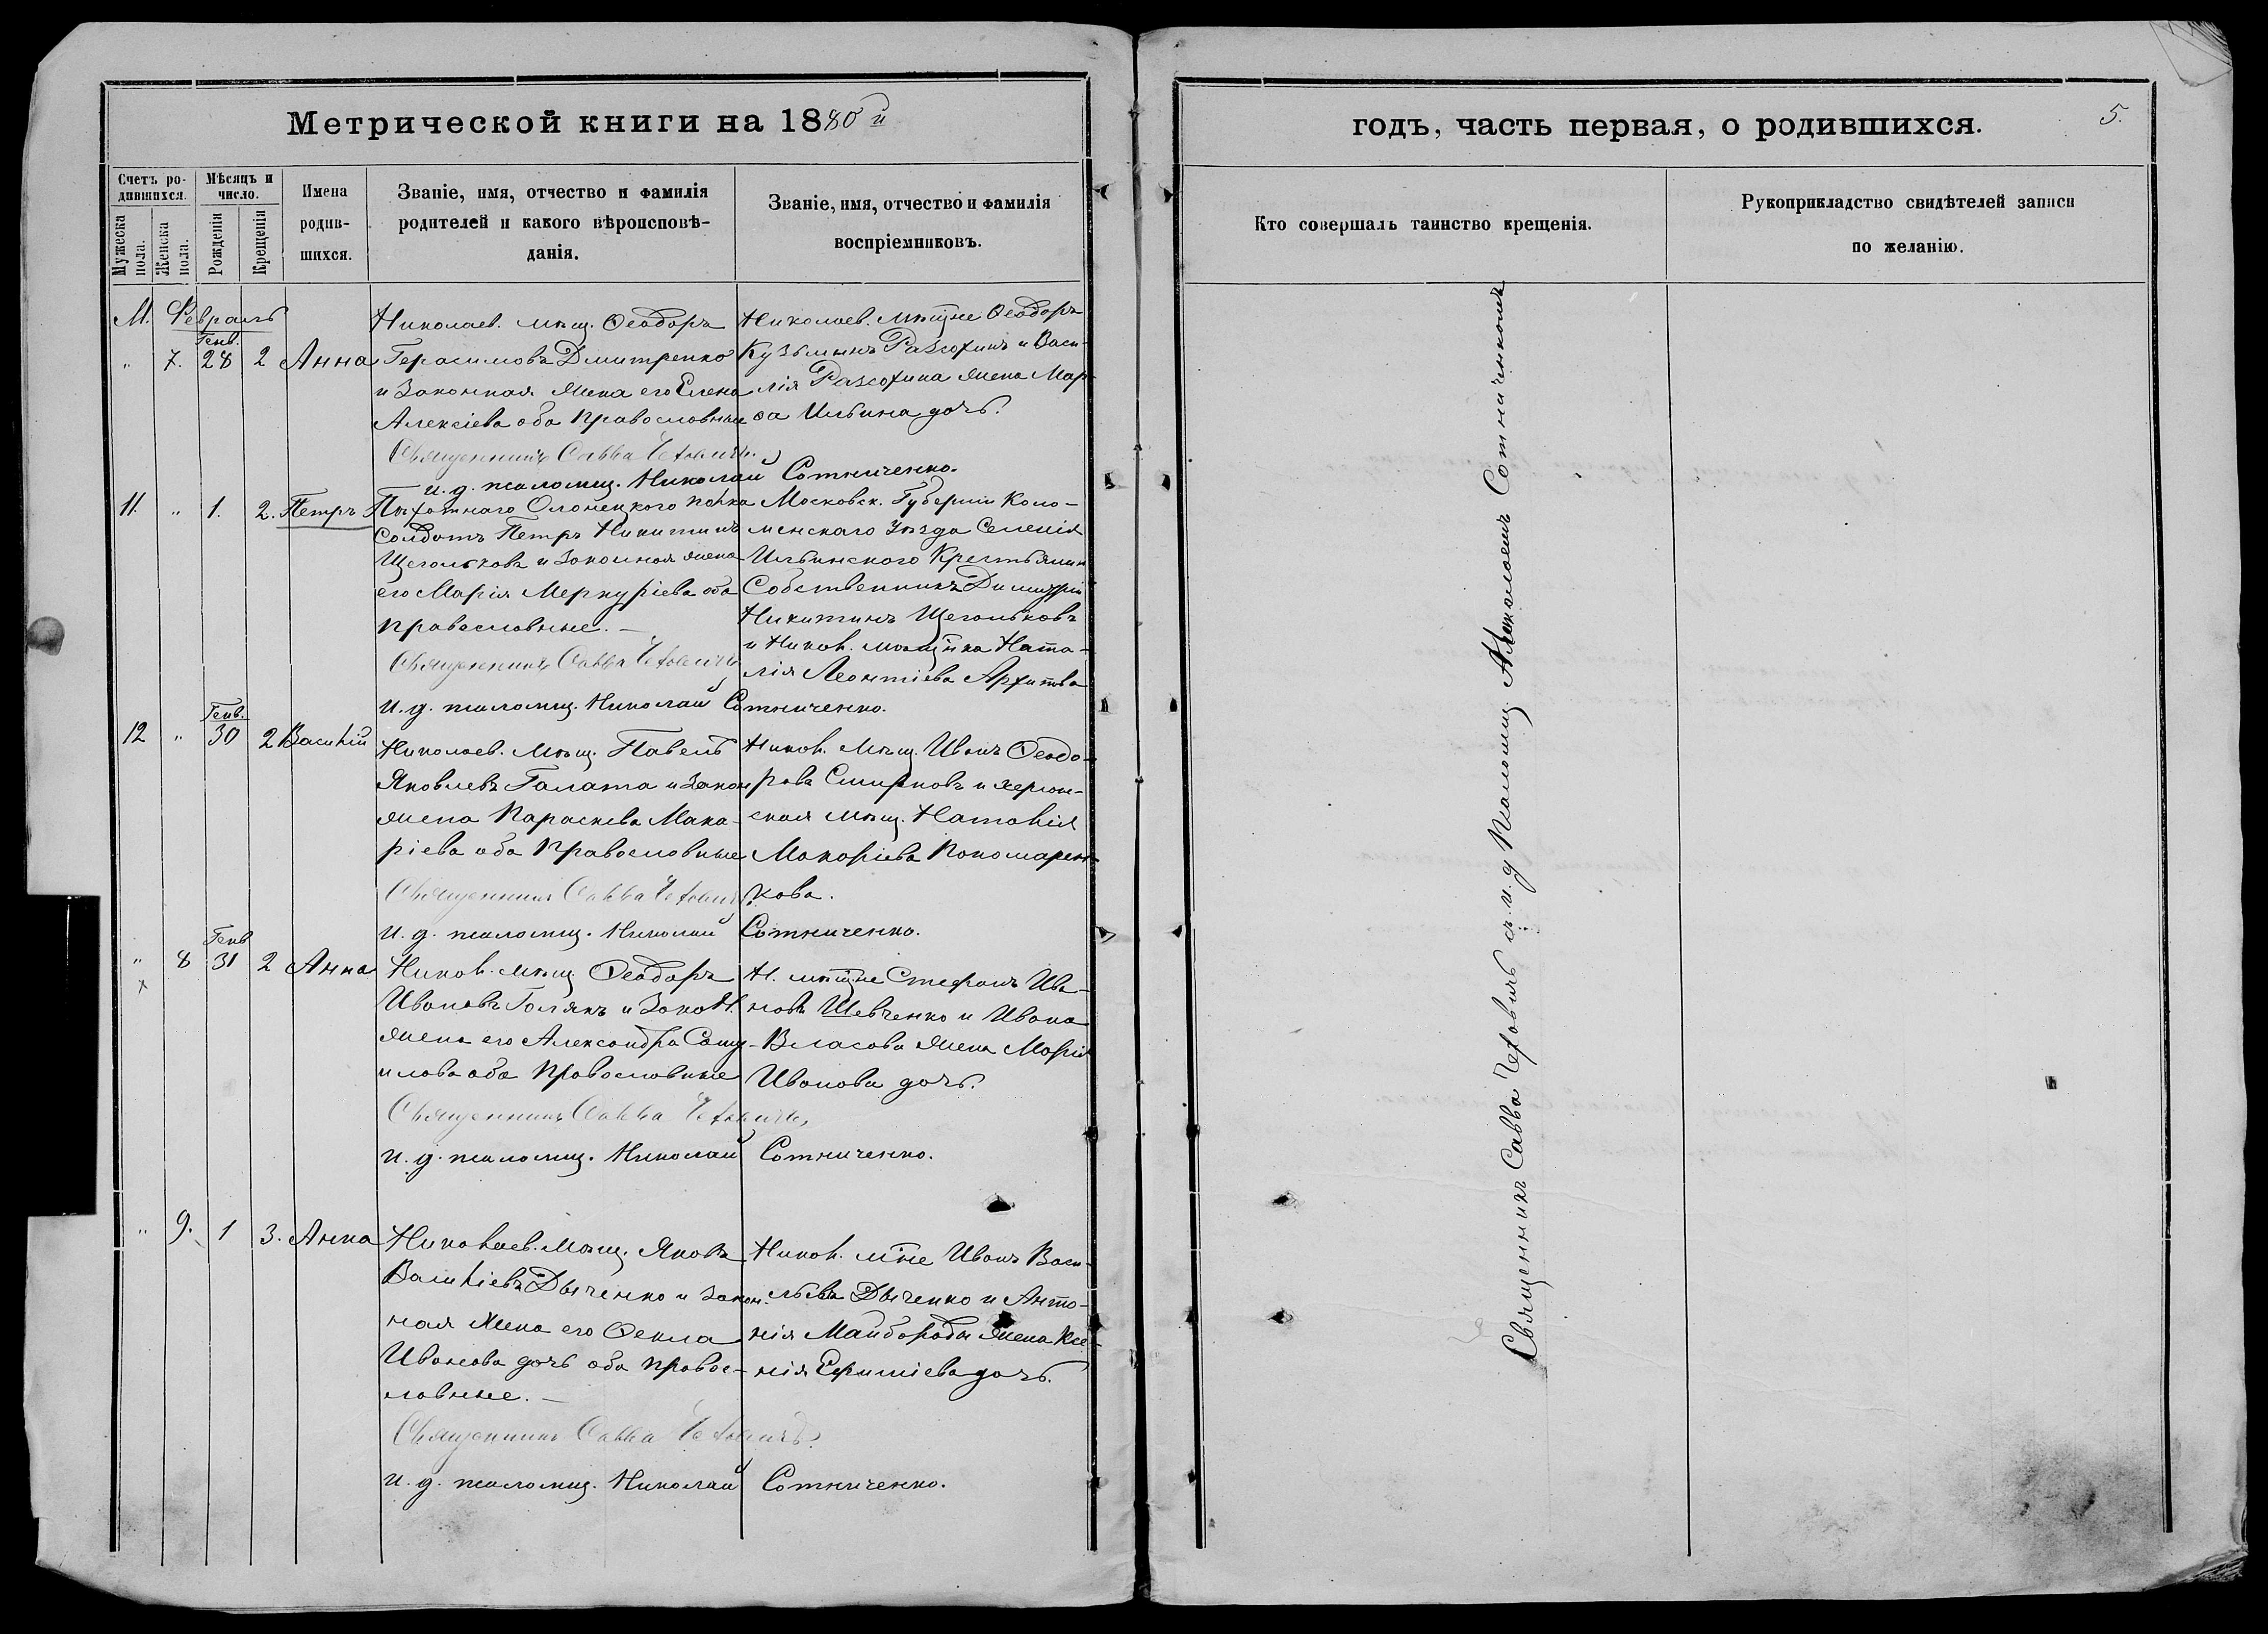 Метрической книги на 1880 й
Счетъ родившихся.
Мужеска пола.
Женска пола.
Мѣсяцъ и число.
Рожденія
Крещенія
Имена родившихся.
Званіе, имя, отчество и фамилія
родителей и какого вѣроисповѣ-
данія.
Званіе, имя, отчество и фамилія
воспріемниковъ.
М. Февраль
Генв.
" 7. 28 2 Анна
Николаев. мѣщ. Ѳеодоръ
Герасимовъ Дмитренко
и Законная жена его Елена
Алексіева оба православные
Священникъ Савва Чехович
и. д. псаломщ. Николай Сотниченко.
Николаев. мѣщне Ѳеодоръ
Кузьминъ Разсохинъ и Васи-
лія Разсохина жена Мар-
ѳа Ильина дочь.
11. " 1. 2. Петръ
Пѣхотнаго Олонецкого полка
Солдатъ Петръ Никитинъ
Щегольковъ и Законная жена
его Марія Меркуріева оба
православные. —
Священникъ Савва Чеховичъ
и. д. псаломщ. Николай Сотниченко.
Московск. Губерніи Коло-
менскаго Уѣзда Селенія
Ильинского Крестьянин
Собственникъ Димитрій
Никитинъ Щегольковъ
и Никол. мѣщнка Ната-
лія Леонтіева
Генв.
12 " 30 2 Василій
Николаев. Мѣщ. Павелъ
Яковлевъ Галата и Закон
жена Параскева Мака-
ріева оба Православные
Священникъ Савва Чехович
и. д. псаломщ. Николай Сотниченко.
Никол. Мѣщ. Иванъ Ѳеодо-
ровъ Смирновъ и херсон-
ская мѣщ. Наталія
Макаріева Пономарен-
кова.
Генв
" 8 31 2 Анна
Никол. мѣщ Ѳеодоръ
Ивановъ Голякъ и Закон.
жена его Александра Саму-
илова оба Православные
Священникъ Савва Чеховичъ
и. д. псаломщ. Николай Сотниченко.
Н. мѣщне Стефанъ Ива-
новъ Шевченко и Ивана
Власова жена Марія
Иванова дочь.
" 9. 1 3. Анна
Николаев. Мѣщ. Яковъ
Василіевъ Дяченко и закон-
ная жена его Ѳекла
Иванова дочь оба правос-
лавные. —
Священникъ Савва Чеховичъ.
и. д. псаломщ. Николай Сотниченко.
Никол. мѣне Иванъ Васи-
льевъ Дяченко и Анто-
нія Майбороды жена Ксе-
нія Ефиміева дочь.
годъ, часть первая, о родившихся. 5.
Кто совершалъ таинство крещенія.
Рукоприкладство свидѣтелей записи
по желанію.
Священникъ Савва Чеховичъ съ и. д Псаломщ. Николаемъ Сотниченкомъ